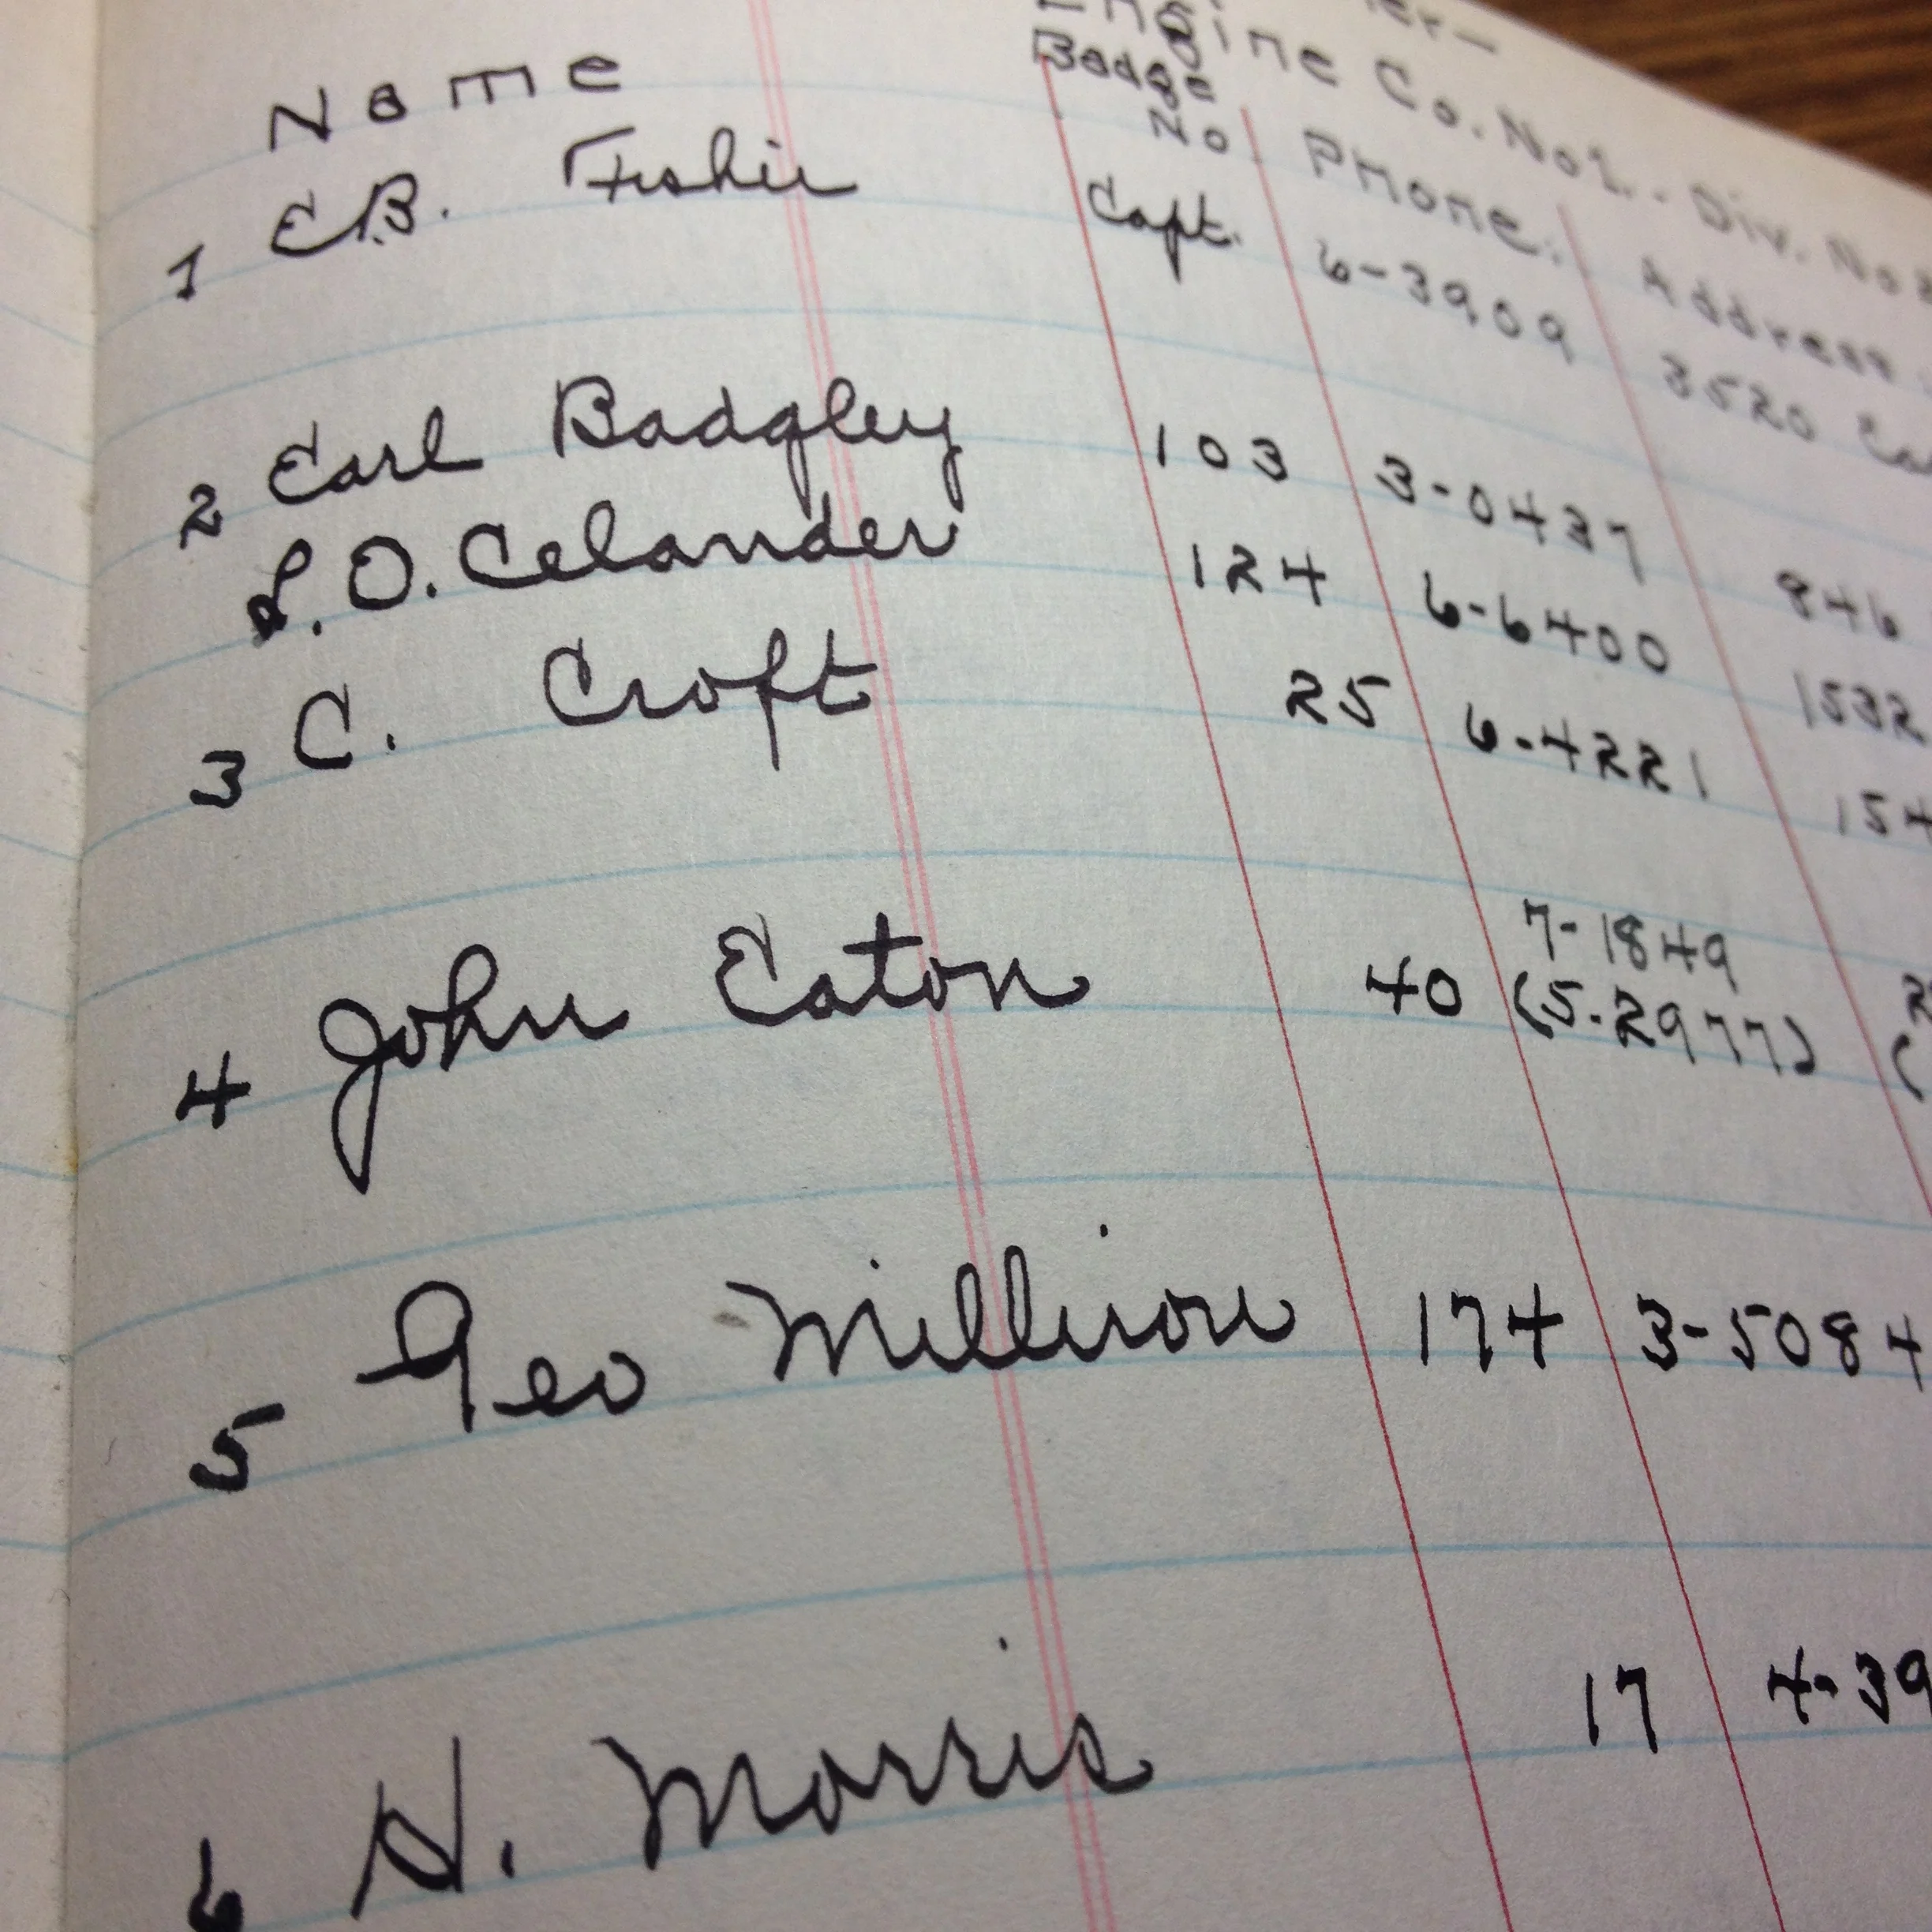 Engine Co. No 2. - Div. No
Name Badge No Phone. Address
1 E.B. Fisher Capt. 6-3909 3520
2 Earl Badgley 103 3-0437 846
L.O. Celander 124 6-6400 1532
3 C. Croft 25 6-4221 154
7-1849
4 John Eaton 40 (5-2977) (
5 Geo Millison 174 3-5084
6 H. Morris 17 4-39